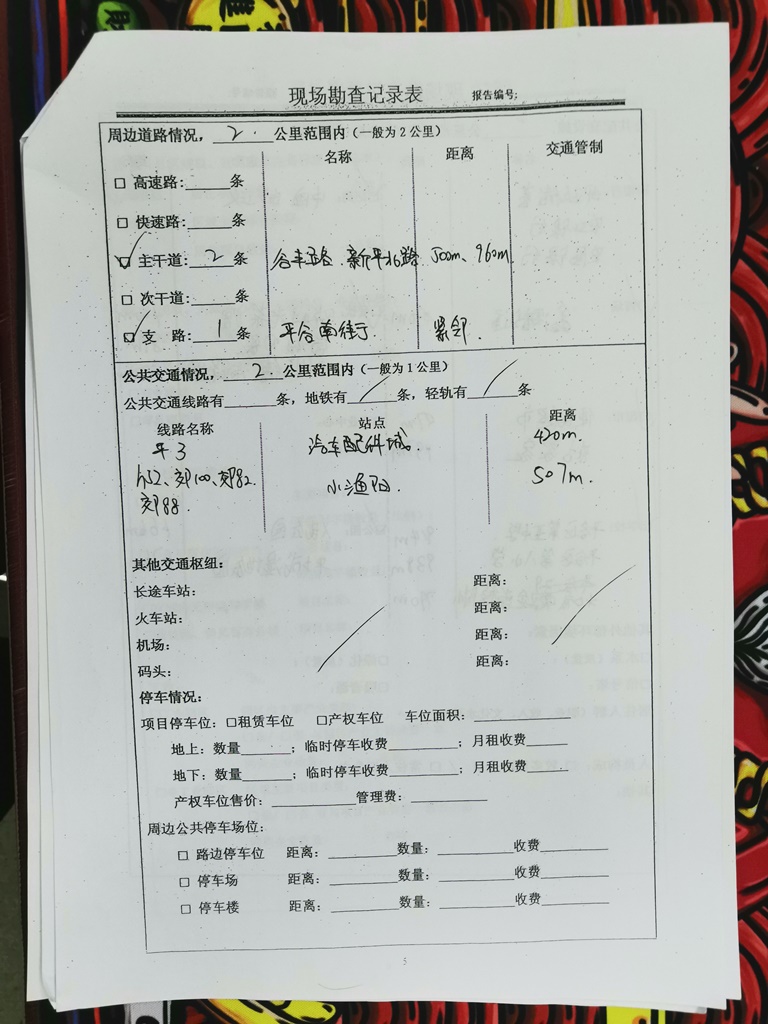 现场勘查记录表 报告编号:
周边道路情况，2.公里范围内（一般为2公里）
名称 距离 交通管制
□ 高速路:______条
□ 快速路:______条
☑ 主干道: 2 条 谷丰路、新平北路 500m、960m
□ 次干道:______条
☑ 支 路: 1 条 平谷南街 紧邻.
公共交通情况，2.公里范围内（一般为1公里）
公共交通线路有______条，地铁有／条，轻轨有／条
线路名称 站点 距离
平3 汽车配件城. 420m.
h52、郊100、郊82. 小渔阳. 507m.
郊88.
其他交通枢纽:
长途车站: 距离:
火车站: 距离:
机场: 距离:
码头: 距离:
停车情况:
项目停车位: □租赁车位 □产权车位 车位面积:____________
地上: 数量______; 临时停车收费________; 月租收费______
地下: 数量______; 临时停车收费________; 月租收费______
产权车位售价: __________管理费: __________
周边公共停车场位:
□ 路边停车位 距离: ________数量: _________收费________
□ 停车场 距离: ________数量: _________收费________
□ 停车楼 距离: ________数量: _________收费________
5